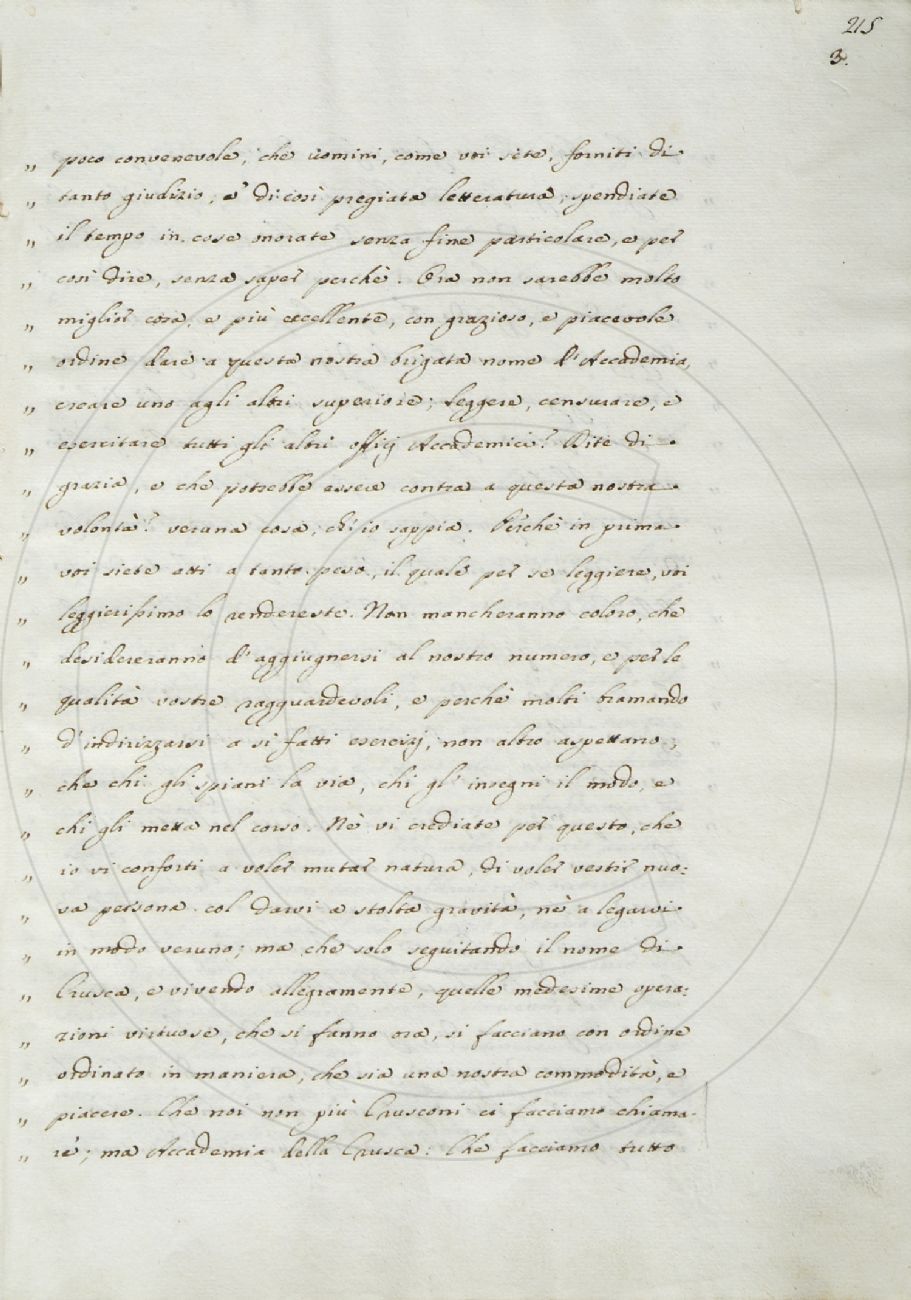 215
3.
„ poco convenevole, che uomini, come voi sète, forniti di
„ tanto giudizio, e di così pregiata letteratura, spendiate
„ il tempo in cose onorate senza fine particolare, e per
„ così dire, senza saper perchè. Ora non sarebbe molto
„ miglior cosa, e più eccellente, con grazioso, e piacevole
„ ordine dare a questa nostra brigata nome d'Accademia,
„ creare uno agli altri superiore; leggere, censurare, e
„ esercitare tutti gli altri offizj Accademici? Dite di
„ grazia, e che potrebbe essere contra a questa nostra
„ volontà? veruna cosa, ch'io sappia. Perchè in prima
„ voi siete atti a tanto peso, il quale per se leggiere, voi
„ leggierissimo lo rendereste. Non mancheranno coloro, che
„ desidereranno d'aggiugnersi al nostro numero, e per le
„ qualità vostre ragguardevoli, e perchè molti bramando
„ d'indirizzarsi a sì fatti esercizj, non altro aspettano,
„ che chi gli spiani la via, chi gl'insegni il modo, e
„ chi gli metta nel corso. Nè vi crediate per questo, che
„ io vi conforti a voler mutar natura, di voler vestir nuo:
„ va persona col darvi a stolta gravità, nè a legarvi
„ in modo veruno; ma che solo seguitando il nome di
„ Crusca, e vivendo allegramente, quelle medesime opera:
„ zioni virtuose, che si fanno ora, si facciano con ordine
„ ordinato in maniera, che sia una nostra commodità, e
„ piacere. Che noi non più Crusconi ci facciamo chiama-
„ re; ma Accademia della Crusca: Che facciamo tutto